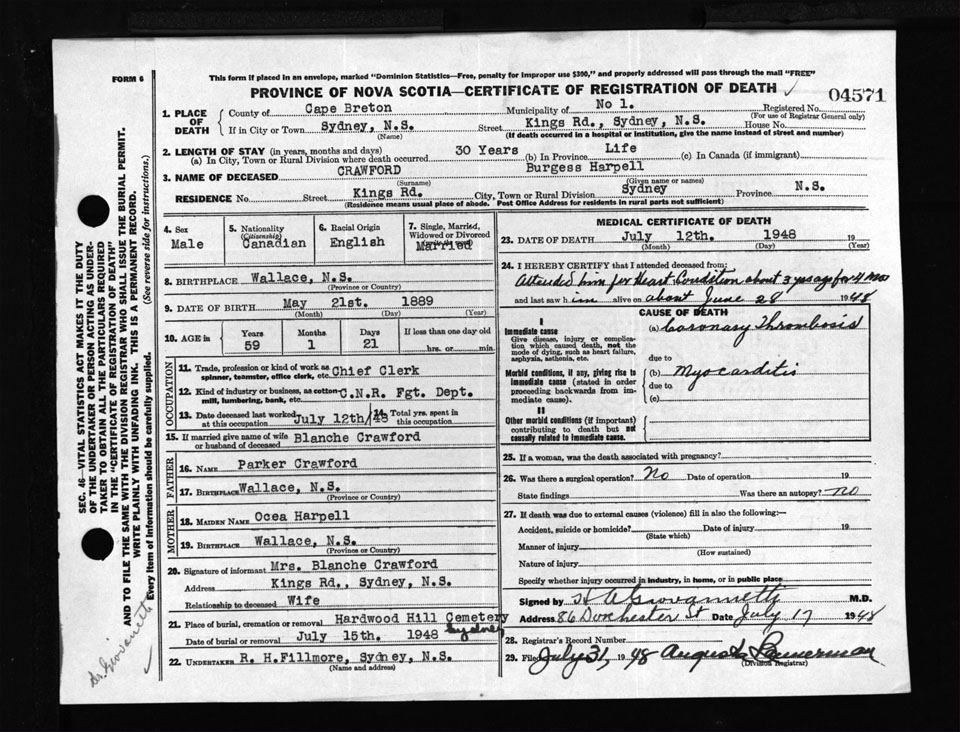 FORM 6
This form if placed in an envelope, marked "Dominion Statistics—Free, penalty for improper use $300," and properly addressed will pass through the mail "FREE"
PROVINCE OF NOVA SCOTIA—CERTIFICATE OF REGISTRATION OF DEATH ✓ 04571
1. PLACE OF DEATH
County of Cape Breton Municipality of No 1. Registered No.
(For use of Registrar General only)
If in City or Town Sydney, N.S. Street Kings Rd., Sydney, N.S. House No.
(Name) (If death occurred in a hospital or institution, give the name instead of street and number)
2. LENGTH OF STAY (in years, months and days)
(a) In City, Town or Rural Division where death occurred 30 Years (b) In Province Life (c) In Canada (if immigrant)
3. NAME OF DECEASED CRAWFORD Burgess Harpell
(Surname) (Given name or names)
RESIDENCE No. Street Kings Rd. City, Town or Rural Division Sydney Province N.S.
(Residence means usual place of abode. Post Office Address for residents in rural parts not sufficient)
4. Sex Male
5. Nationality (Citizenship) Canadian
6. Racial Origin English
7. Single, Married, Widowed or Divorced Married
8. BIRTHPLACE Wallace, N.S.
(Province or Country)
9. DATE OF BIRTH May 21st. 1889
(Month) (Day) (Year)
10. AGE in Years 59 Months 1 Days 21 If less than one day old hrs. or min.
OCCUPATION
11. Trade, profession or kind of work as spinner, teamster, office clerk, etc. Chief Clerk
12. Kind of industry or business, as cotton mill, lumbering, bank, etc. C.N.R. Fgt. Dept.
13. Date deceased last worked at this occupation July 12th/48 14. Total yrs. spent in this occupation
15. If married give name of wife or husband of deceased Blanche Crawford
FATHER
16. NAME Parker Crawford
17. BIRTHPLACE Wallace, N.S.
(Province or Country)
MOTHER
18. MAIDEN NAME Ocea Harpell
19. BIRTHPLACE Wallace, N.S.
(Province or Country)
20. Signature of informant Mrs. Blanche Crawford
Address Kings Rd., Sydney, N.S.
Relationship to deceased Wife
21. Place of burial, cremation or removal Hardwood Hill Cemetery
Sydney
Date of burial or removal July 15th. 1948
22. UNDERTAKER R. H.Fillmore, Sydney, N.S.
(Name and address)
MEDICAL CERTIFICATE OF DEATH
23. DATE OF DEATH July 12th. 1948 19
(Month) (Day) (Year)
24. I HEREBY CERTIFY that I attended deceased from:
Attended him for Heart Condition about 3 yrs ago for 4 mos
and last saw him alive on about June 28 1948
CAUSE OF DEATH
I
Immediate cause
Give disease, injury or complication which caused death, not the mode of dying, such as heart failure, asphyxia, asthenia, etc.
(a) Coronary Thrombosis
due to
Morbid conditions, if any, giving rise to immediate cause (stated in order proceeding backwards from immediate cause).
(b) Myocarditis
due to
(c)
II
Other morbid conditions (if important) contributing to death but not causally related to immediate cause.
25. If a woman, was the death associated with pregnancy?
26. Was there a surgical operation? No Date of operation 19
State findings Was there an autopsy? no
27. If death was due to external causes (violence) fill in also the following:—
Accident, suicide or homicide? Date of injury 19
(State which)
Manner of injury
(How sustained)
Nature of injury
Specify whether injury occurred in industry, in home, or in public place
Signed by H A Giovannetti M.D.
Address 86 Dorchester St Date July 17 1948
28. Registrar's Record Number
29. Filed July 31, 1948 Augusta
(Division Registrar)
SEC. 46—VITAL STATISTICS ACT MAKES IT THE DUTY
OF THE UNDERTAKER OR PERSON ACTING AS UNDER-
TAKER TO OBTAIN ALL THE PARTICULARS REQUIRED
IN THE "CERTIFICATE OF REGISTRATION OF DEATH"
AND TO FILE THE SAME WITH THE DIVISION REGISTRAR WHO SHALL ISSUE THE BURIAL PERMIT.
WRITE PLAINLY WITH UNFADING INK. THIS IS A PERMANENT RECORD.
Every item of Information should be carefully supplied. (See reverse side for instructions.)
Dr. Giovannetti
✓